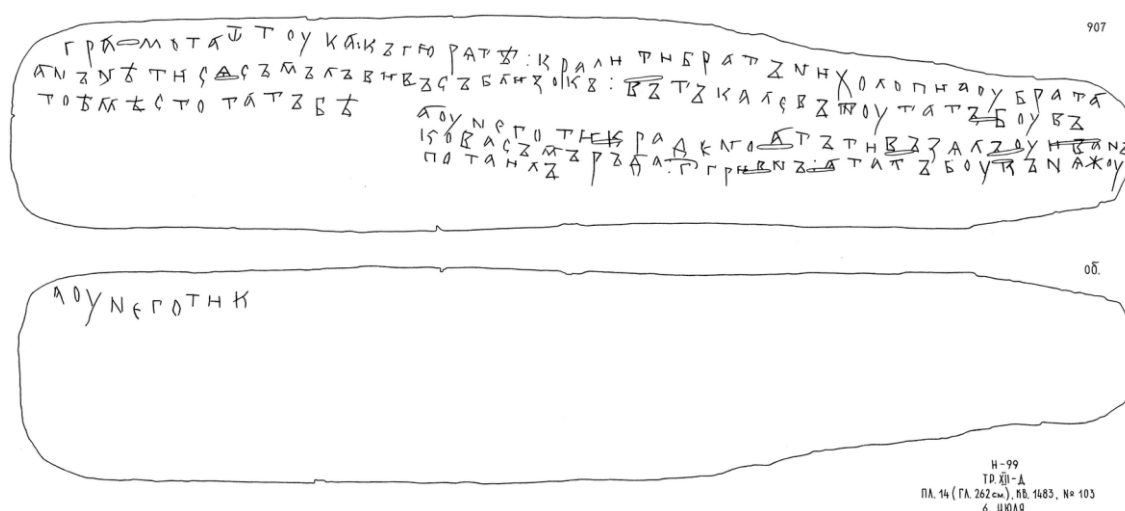 грамотаѿтоука:къгюратѣ:кралитибратънихолопиаоубрата
анънѣтисѧсъмълъвивъсъблизокъ:вътъкалевътоутатъбоувъ
тоѣмѣстотатъбѣ
аоунеготикрадкнгоатътивъзалъоуиванъ
ковасъмърьда:г҃:гривнъ:ататъбоукънажоу
потаилъ
907
об.
аоунеготик
Н-99
ТР. XII-Д
ПЛ. 14 (ГЛ. 262 см), КВ. 1483, № 103
6 ИЮЛЯ